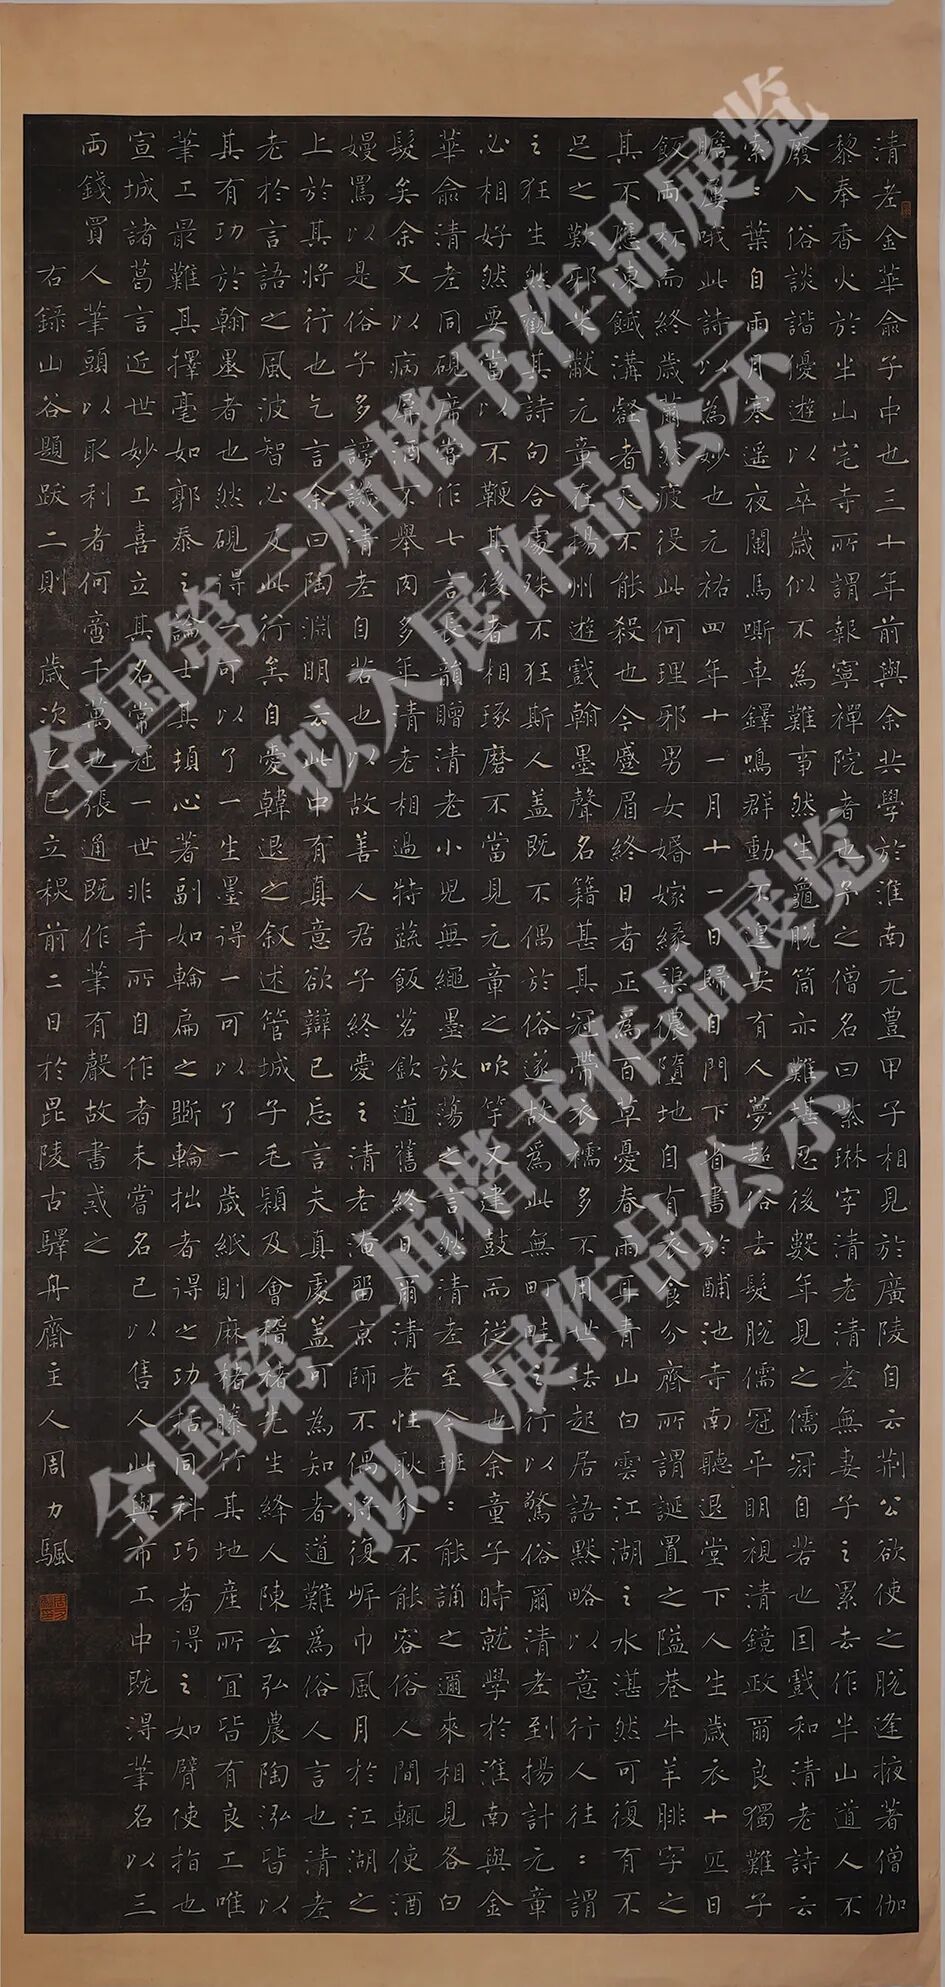 清老金華俞子中也三十年前與余共學於淮南元豊甲子相見於廣陵自云荆公欲使之脱逢掖著僧伽
黎奉香火於半山宅寺所謂報寧禪院者也予之僧名曰紫琳字清老清老無妻子之累去作半山道人不
廢入俗談諧優遊以卒歲似不為難事然生龜脱筒亦難堪忍後數年見之儒冠自若也因戲和清老詩云
索:葉自雨月寒遥夜闌馬嘶車鐸鳴群動不遑安有人夢超俗去髮脱儒冠平明視清鏡政爾良獨難子
瞻屢哦此詩以為妙也元祐四年十一月十一日歸自門下省書於酺池寺南聽退堂下人生歲衣十匹日
飯兩杯而終歲薾然疲役此何理邪男女婚嫁緣渠儂墮地自有衣食分齊所謂誕置之隘巷牛羊腓字之
其不應凍餓溝壑者天不能殺也今蹙眉終日者正為百草憂春雨耳青山白雲江湖之水湛然可復有不
足之歎邪米黻元章在揚州遊戲翰墨聲名籍甚其冠帶衣襦多不用世法起居語默略以意行人往:謂
之狂生然觀其詩句合處殊不狂斯人盖既不偶於俗遂故為此無町畦之行以驚俗爾清老到揚計元章
必相好然要當以不鞭其後者相琢磨不當見元章之吹竽又建鼓而從之也余童子時就學於淮南與金
華俞清老同硯席嘗作七言長韻贈清老小兒無繩墨放蕩之言然清老至今班:能誦之邇來相見各白
髮矣余又以病屏酒不舉肉多年清老相過特蔬飯茗飲道舊終日爾清老性耿介不能容俗人間輒使酒
嫚罵以是俗子多謗譏清老自若也以故善人君子終愛之清老淹留京師不偶將復岸巾風月於江湖之
上於其將行也乞言余曰陶淵明云此中有真意欲辯已忘言夫真處盖可為知者道難為俗人言也清老
老於言語之風波智必及此行矣自愛韓退之叙述管城子毛穎及會稽楮先生絳人陳玄弘農陶泓皆以
其有功於翰墨者也然硯得一可以了一生墨得一可以了一歲紙則麻楮藤竹其地產所宜皆有良工唯
筆工最難其擇毫如郭泰之論士其頓心著副如輪扁之斲輪拙者得之功楛同科巧者得之如臂使指也
宣城諸葛言近世妙工喜立其名常冠一世非手所自作者未嘗名己以售人此與市工中既淂筆名以三
兩錢買人筆頭以取利者何啻千萬也張通既作筆有聲故書戒之
右録山谷題跋二則 歲次乙巳立秋前二日於毘陵古驛舟齋主人周力飆
全国第三届楷书作品展览
拟入展作品公示
全国第三届楷书作品展览
拟入展作品公示